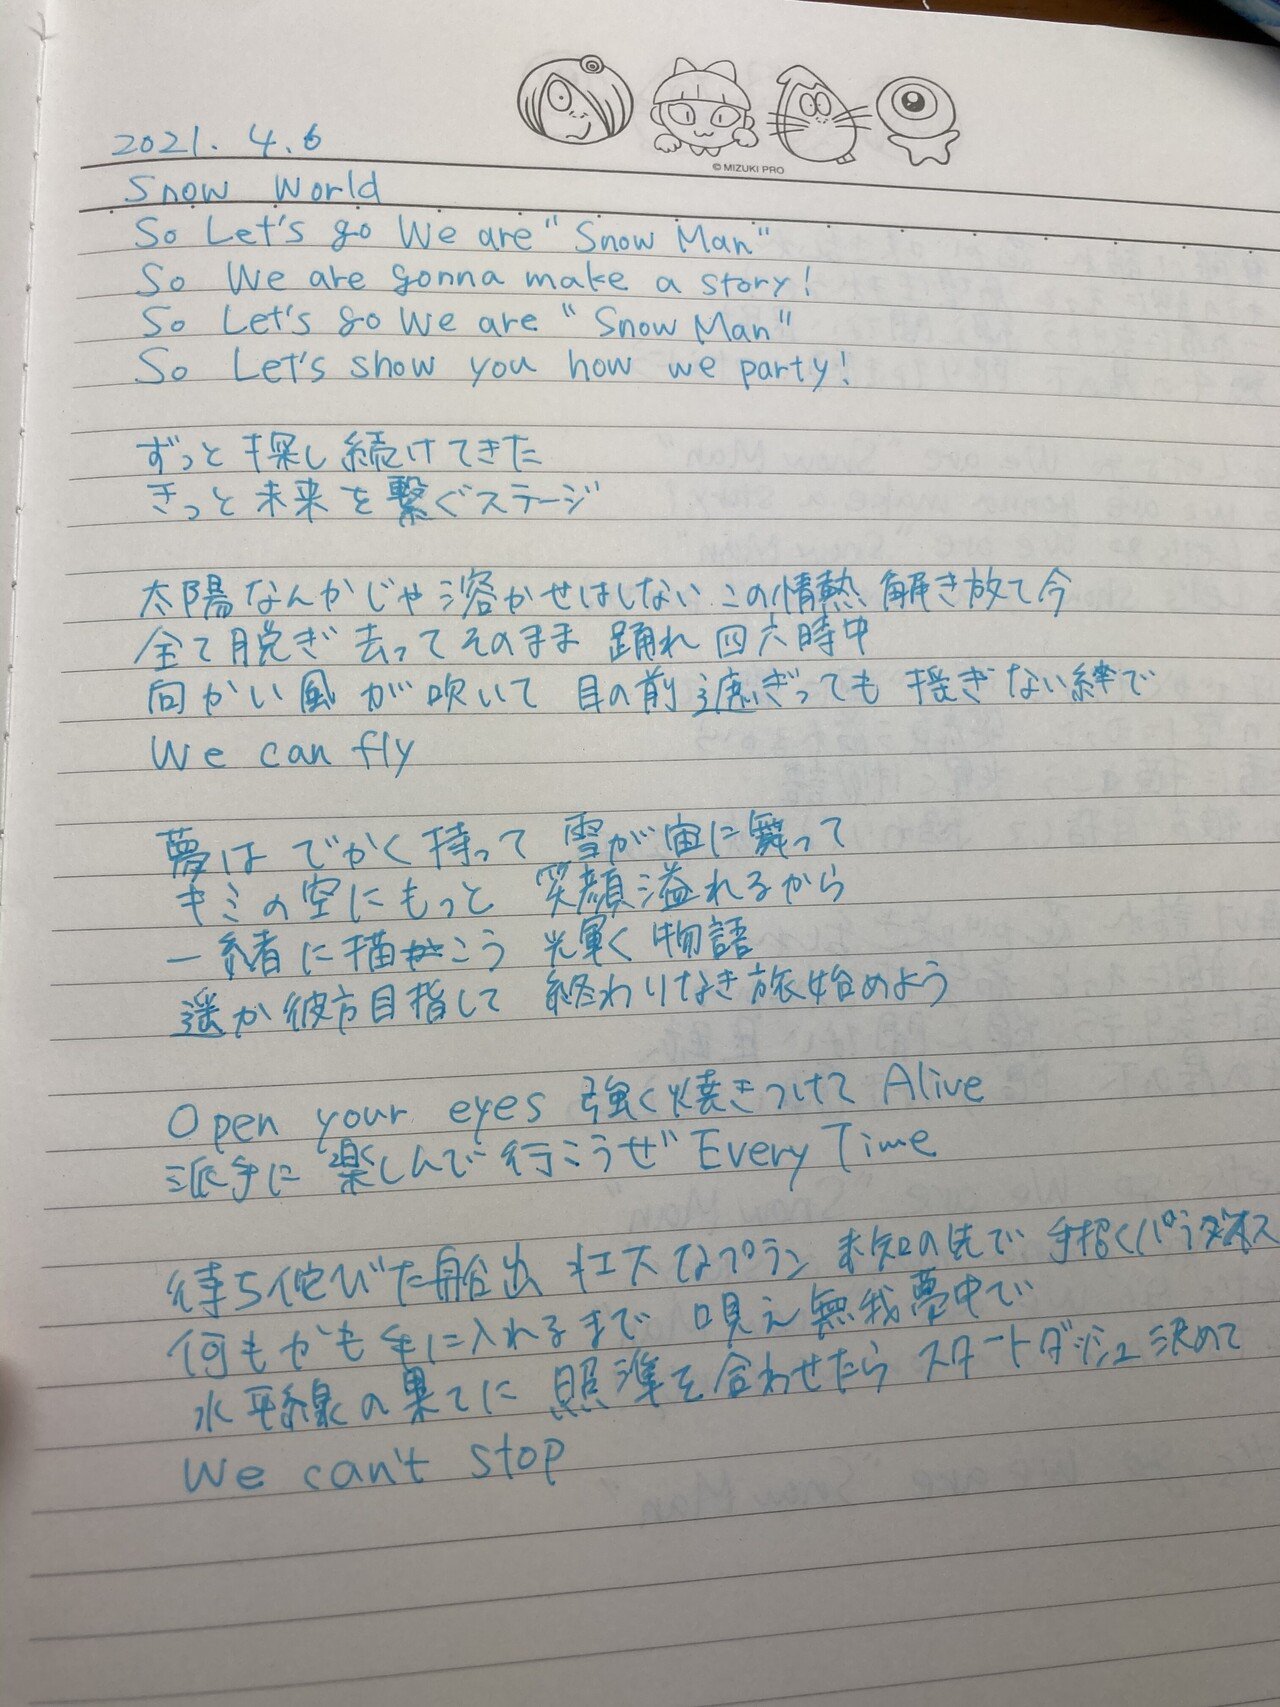 © MIZUKI PRO
2021. 4. 6
Snow World
So Let's go We are "Snow Man"
So We are gonna make a story!
So Let's go We are "Snow Man"
So Let's show you how we party!
ずっと探し続けてきた
きっと未来を繋ぐステージ
太陽なんかじゃ溶かせはしない この情熱 解き放て今
全て脱ぎ去ってそのまま 踊れ 四六時中
向かい風が吹いて 目の前遮ぎっても 揺ぎない絆で
We can fly
夢はでかく持って 雪が宙に舞って
キミの空にもっと 笑顔溢れるから
一緒に描こう 光輝く物語
遥か彼方目指して 終わりなき旅始めよう
Open your eyes 強く焼きつけて Alive
派手に楽しんで行こうぜ Every Time
待ち侘びた船出 壮大なプラン 未知の先で 手招くパラダイス
何もかも手に入れるまで 唄え無我夢中で
水平線の果てに 照準を合わせたら スタートダッシュ決めて
We can't stop